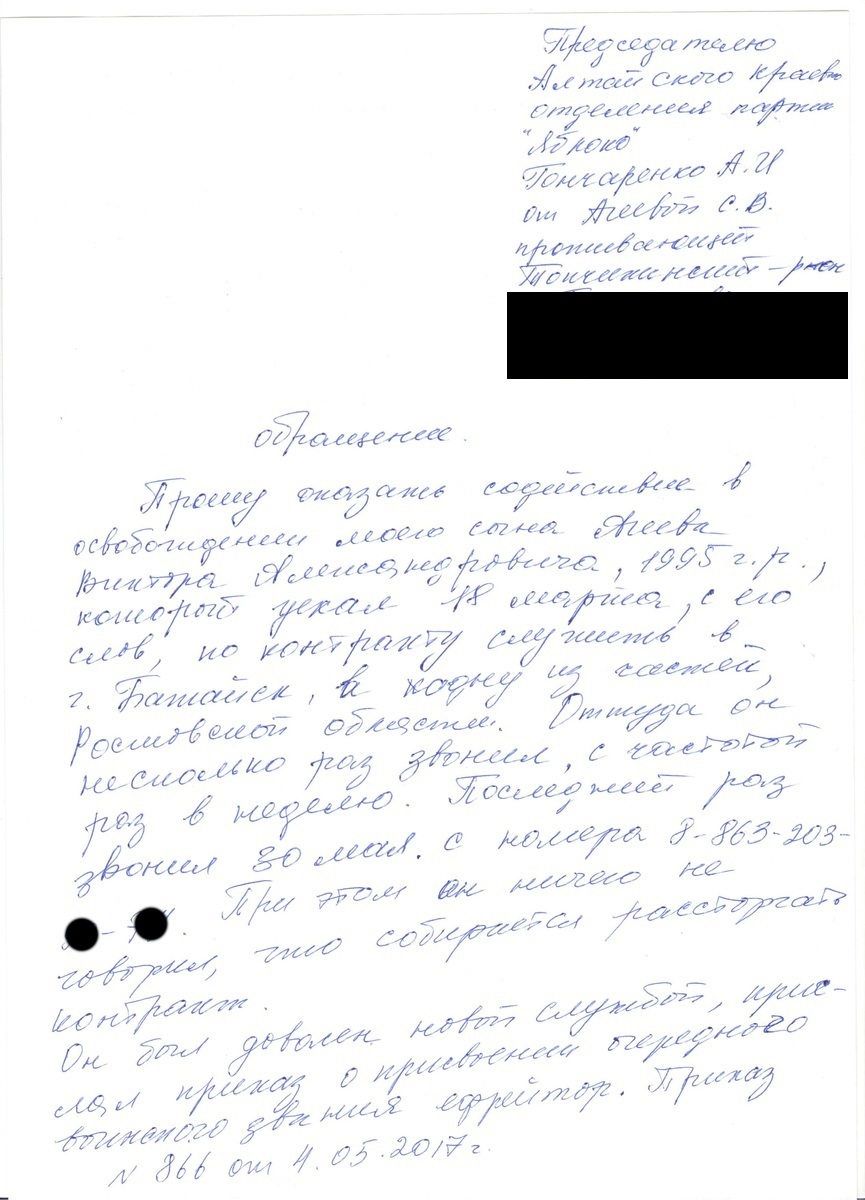 Председателю
Алтайского краев
отделения партии
"Яблоко"
Гончаренко А.И
от Агеевой С.В.
проживающей
Топчихинский – р-он
обращение.
Прошу оказать содействие в
освобождении моего сына Агеева
Виктора Александровича, 1995 г.р.,
который уехал 18 марта, с его
слов, по контракту служить в
г. Батайск, в одну из частей,
Ростовской области. Оттуда он
несколько раз звонил, с частотой
раз в неделю. Последний раз
звонил 30 мая. с номера 8-863-203-
При этом он ничего не
говорил, что собирается расторгать
контракт.
Он был доволен новой службой, прис-
лал приказ о присвоении очередного
воинского звания ефрейтор. Приказ
N 866 от 4.05.2017г.